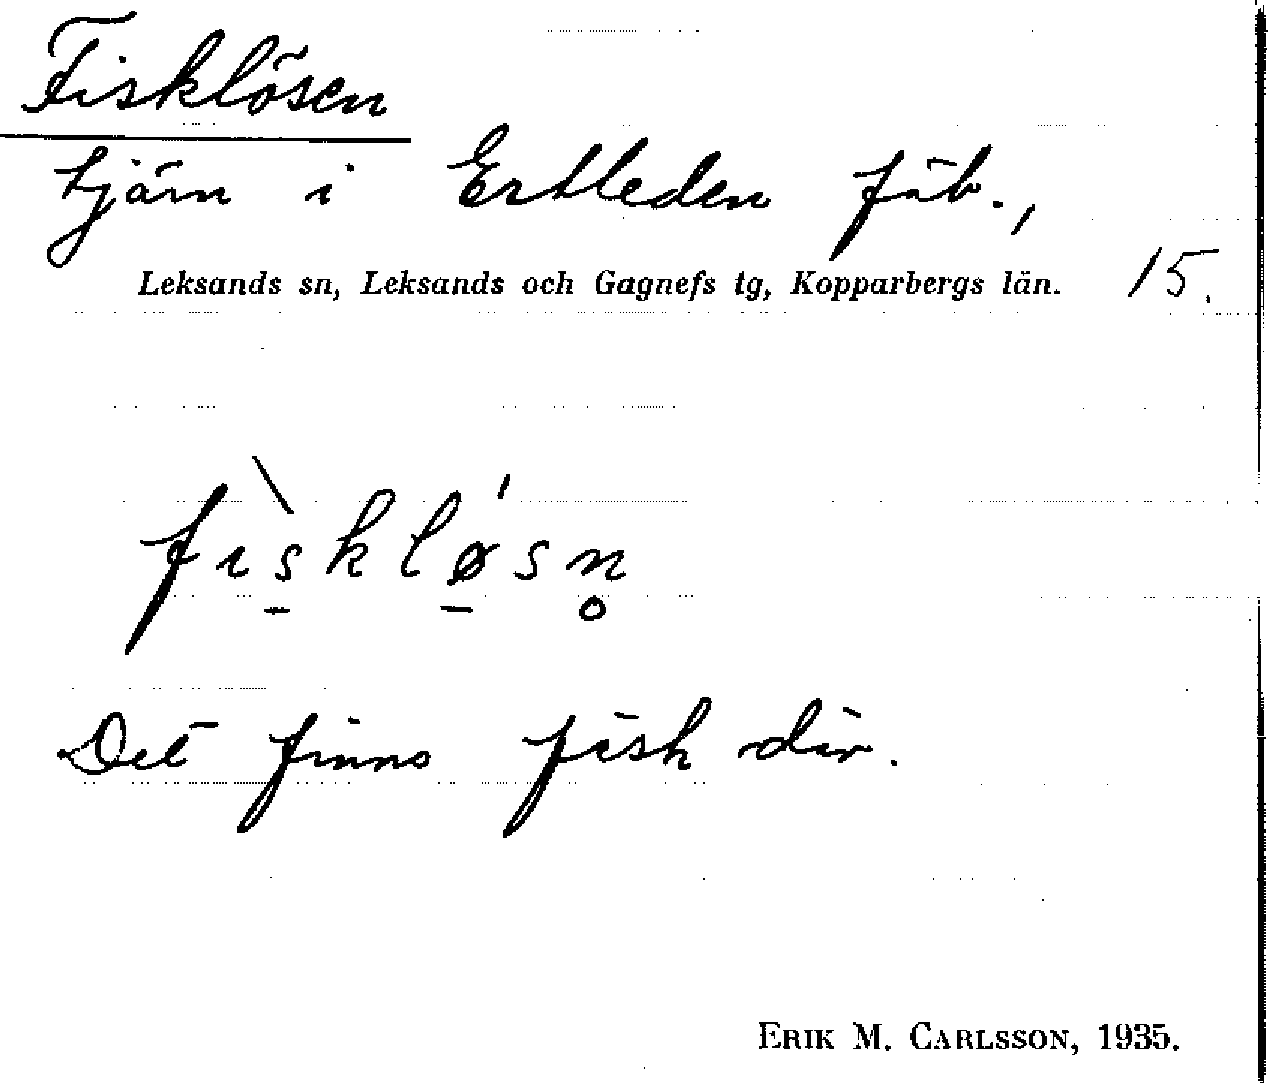 Fisklösen
tjärn i Ertleden fäb.,
Leksands sn, Leksands och Gagnefs tg, Kopparbergs län. 15.
fɪ̀skløʹsn̥
Det finns fisk där.
ERIK M. CARLSSON, 1935.